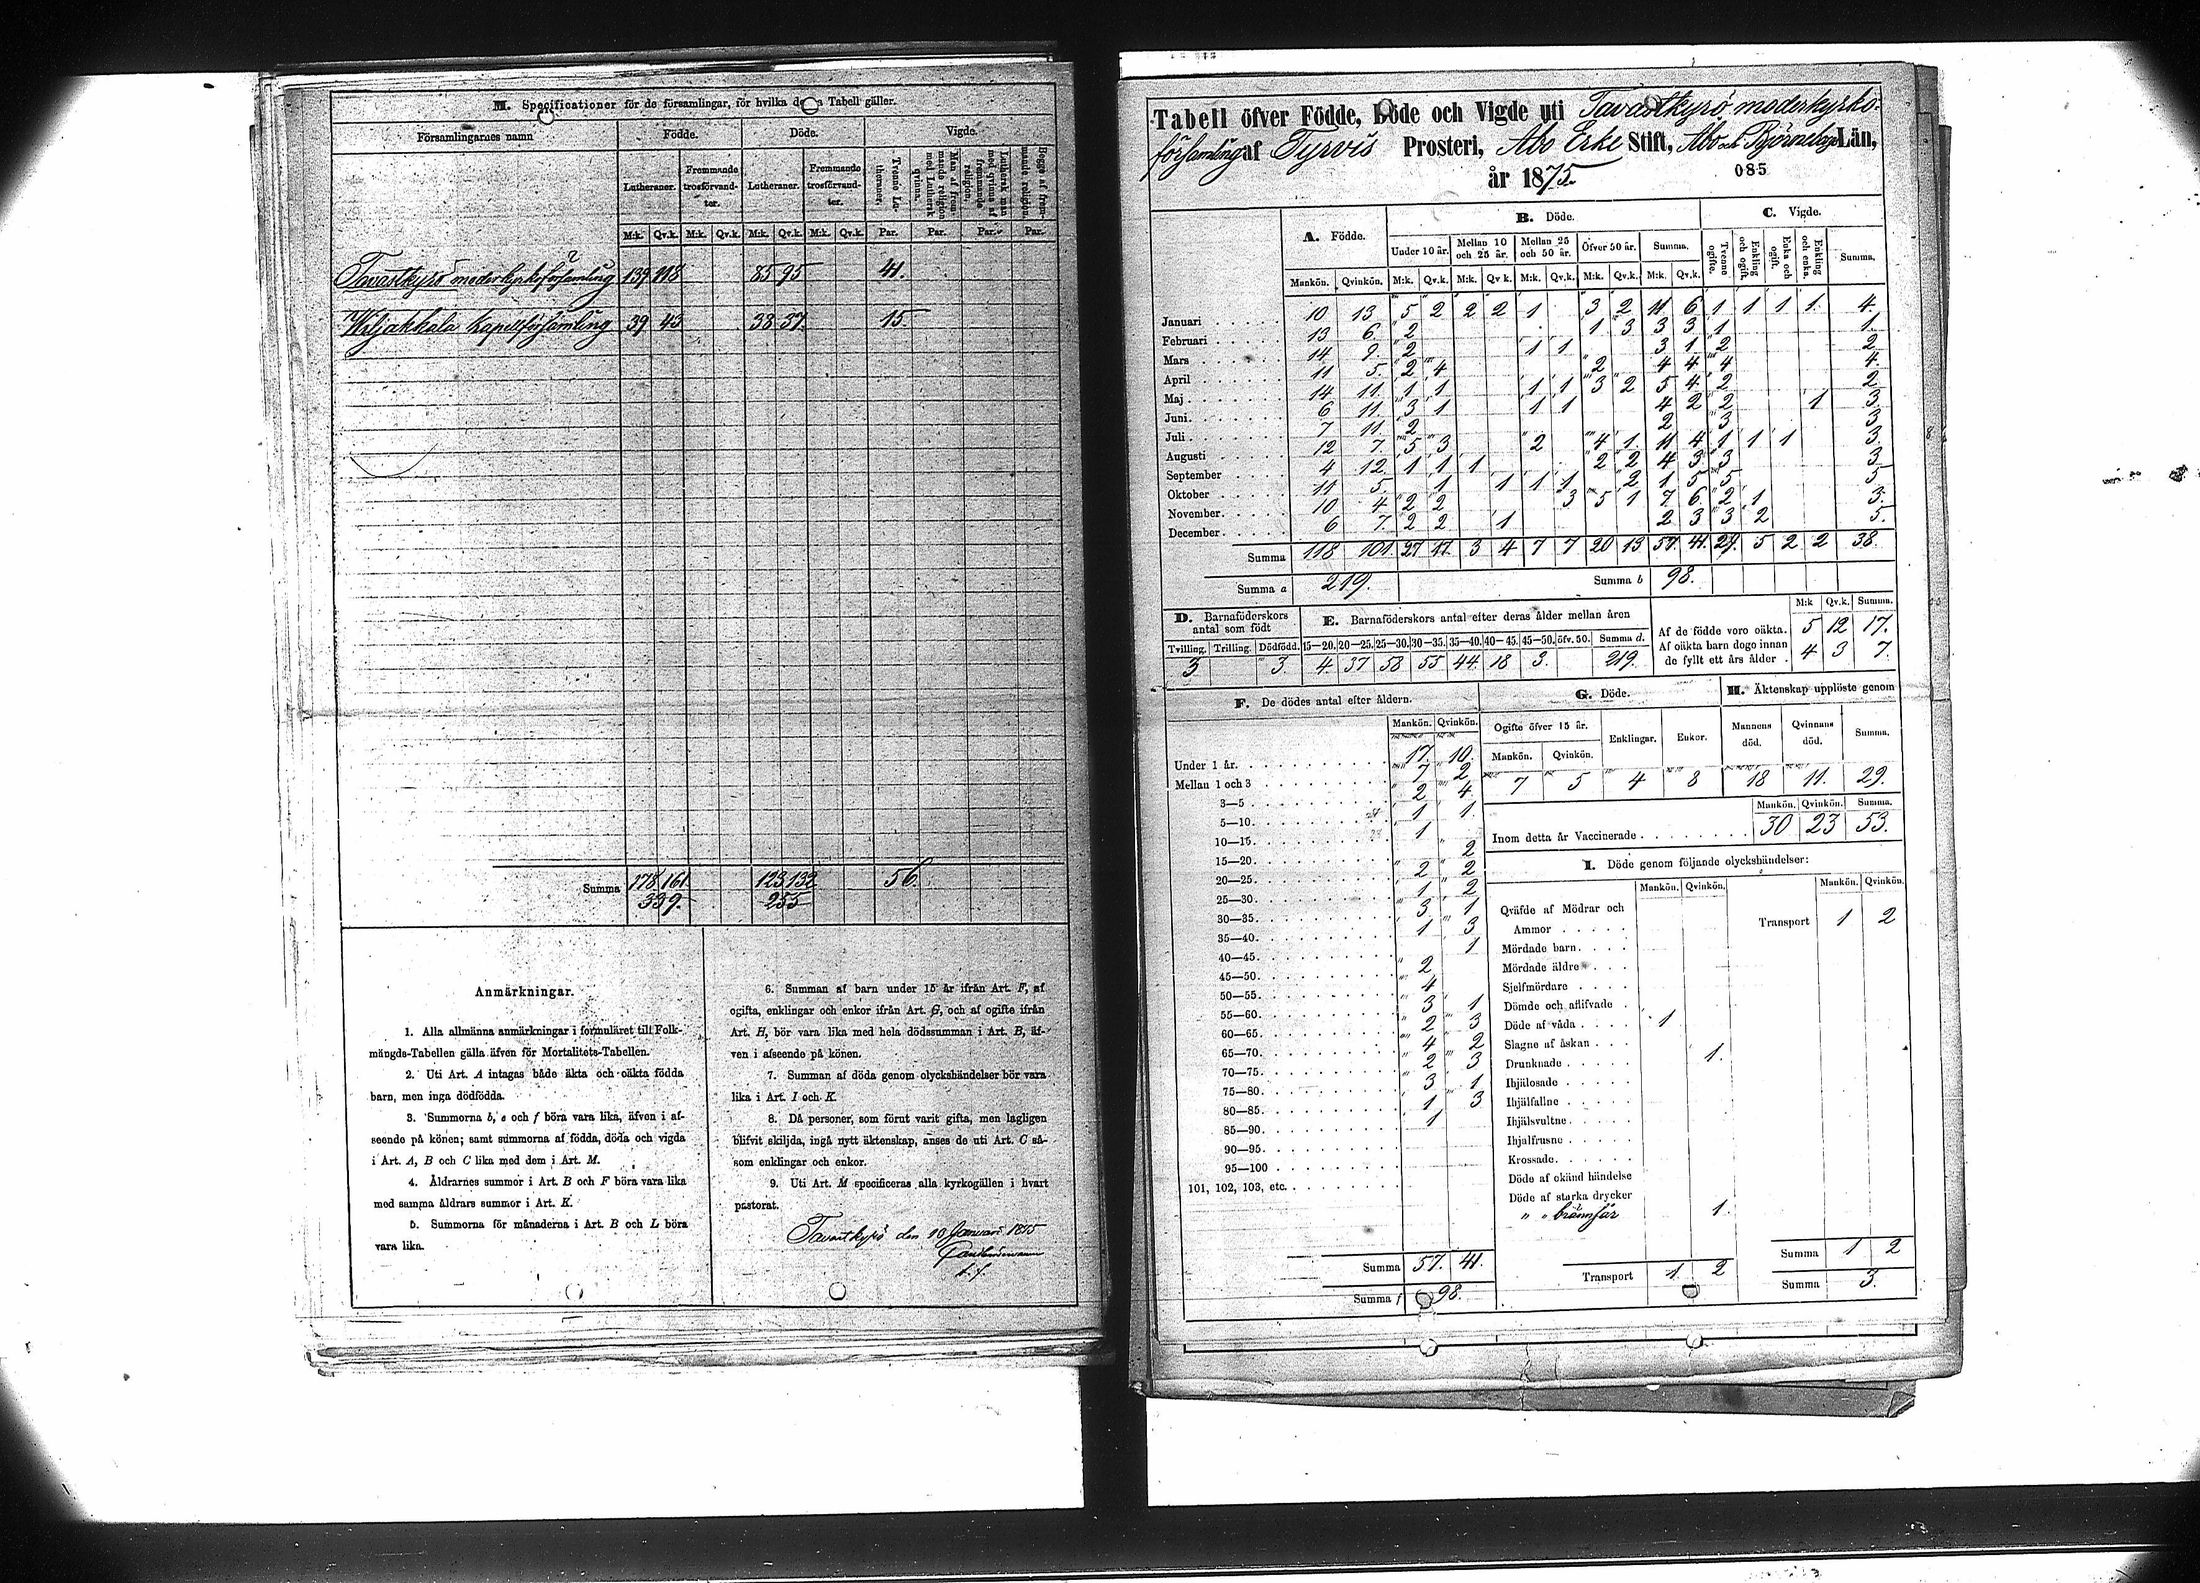 M. Specificationer för de församlingar, för hvilka denna Tabell gäller.
Församlingarnes namn Födde. Döde. Vigde.
Lutheraner. Fremmande trosförvandter. Lutheraner. Fremmande trosförvandter. Trenne Lutheraner.
M:k. Qv.k. M:k. Qv.k. M:k. Qv.k. M:k. Qv.k. Par. Par. Par. Par.
Tavastkyrö moderkyrkoförsamling 139 118 85 95 41.
Wiljakkala Kapellförsamling 39 43 38 37. 15.
Summa 178 161 123 132 56.
339. 255
Anmärkningar.
1. Alla allmänna anmärkningar i formuläret till Folk-
mängds-Tabellen gälla äfven för Mortalitets-Tabellen.
2. Uti Art. A intagas både äkta och oäkta födda
barn, men inga dödfödda.
3. Summorna b, e och f böra vara lika, äfven i af-
seende på könen; samt summorna af födda, döda och vigda
i Art. A, B och C lika med dem i Art. M.
4. Åldrarnes summor i Art. B och F böra vara lika
med samma åldrars summor i Art. K.
5. Summorna för månaderna i Art. B och L böra
vara lika.
6. Summan af barn under 15 år ifrån Art. F, af
ogifta, enklingar och enkor ifrån Art. G, och af ogifte ifrån
Art. H, bör vara lika med hela dödssumman i Art. B, äf-
ven i afseende på könen.
7. Summan af döda genom olyckshändelser bör vara
lika i Art. I och K.
8. Då personer, som förut varit gifta, men lagligen
blifvit skiljda, ingå nytt äktenskap, anses de uti Art. C så-
som enklingar och enkor.
9. Uti Art. M specificeras alla kyrkogällen i hvart
pastorat.
Tavastkyrö den 10 Januari 1875
Tabell öfver Födde, Döde och Vigde uti Tavastkyrö moderkyrko-
församling af Tyrvis Prosteri, Åbo Erke Stift, Åbo och Björneborgs Län,
år 1875.
085
A. Födde. B. Döde. C. Vigde.
Under 10 år. Mellan 10 och 25 år. Mellan 25 och 50 år. Öfver 50 år. Summa. Trenne ogifte. Enkling och ogift. Enka och ogift. Enkling och enka. Summa.
Mankön. Qvinkön. M:k. Qv.k. M:k. Qv.k. M:k. Qv.k. M:k. Qv.k. M:k. Qv.k.
Januari 10 13 5 2 2 2 1 3 2 11 6 1 1 1 1. 4.
Februari 13 6. 2 1 3 3 3 1 1.
Mars 14 9. 2 1 1 3 1 2 2
April 11 5. 2 4 2 4 4 4 4.
Maj 14 11 1 1 1 1 3 2 5 4 2 2
Juni 6 11. 3 1 1 1 4 2 2 1 3.
Juli 7 11 2 2 3 3
Augusti 12 7. 5 3 2 4 1. 11 4 1 1 1 3.
September 4 12 1 1 1 2 2 4 3 3 3
Oktober 11 5. 1 1 1 1 2 1 5 5 5
November 10 4 2 2 3 5 1 7. 6 2 1 3.
December 6 7. 2 2 1 2 3 3 2 5.
Summa 118 101 27 17. 3 4 7 7 20 13 57. 41. 29. 5 2 2 38.
Summa a 219. Summa b 98.
D. Barnaföderskors antal som födt E. Barnaföderskors antal efter deras ålder mellan åren
Tvilling. Trilling. Dödfödd. 15—20. 20—25. 25—30. 30—35. 35—40. 40—45. 45—50. öfv. 50. Summa d.
3 3 4. 37 58 55 44. 18 3. 219.
M:k Qv.k. Summa.
Af de födde voro oäkta. 5 12 17.
Af oäkta barn dogo innan
de fyllt ett års ålder 4 3 7.
F. De dödes antal efter åldern.
Mankön. Qvinkön.
Under 1 år. 17. 10.
Mellan 1 och 3 7 2
3—5 2 4.
5—10. 1 1.
10—15. 1
15—20. 2
20—25. 2 2
25—30. 1 2
30—35. 3 1
35—40. 1 3
40—45. 1
45—50. 2
50—55. 4
55—60. 3 1
60—65. 2 3
65—70. 4 2
70—75. 2 3
75—80. 3 1
80—85. 1 3
85—90. 1
90—95.
95—100
101, 102, 103, etc.
Summa 57. 41.
Summa f 98.
G. Döde.
Ogifte öfver 15 år. Enklingar. Enkor.
Mankön. Qvinkön.
7 5 4 8
H. Äktenskap upplöste genom
Mannens död. Qvinnans död. Summa.
18 11. 29.
Mankön. Qvinkön. Summa.
Inom detta år Vaccinerade 30 23 53.
I. Döde genom följande olyckshändelser:
Mankön. Qvinkön. Mankön. Qvinkön.
Qväfde af Mödrar och
Ammor
Transport 1 2
Mördade barn
Mördade äldre
Sjelfmördare
Dömde och aflifvade
Döde af våda 1
Slagne af åskan
Drunknade 1.
Ihjälosade
Ihjälfallne
Ihjälsvultne
Ihjälfrusne
Krossade
Döde af okänd händelse
Döde af starka drycker
" " brännsår 1.
Transport 1. 2
Summa 1 2
Summa 3.